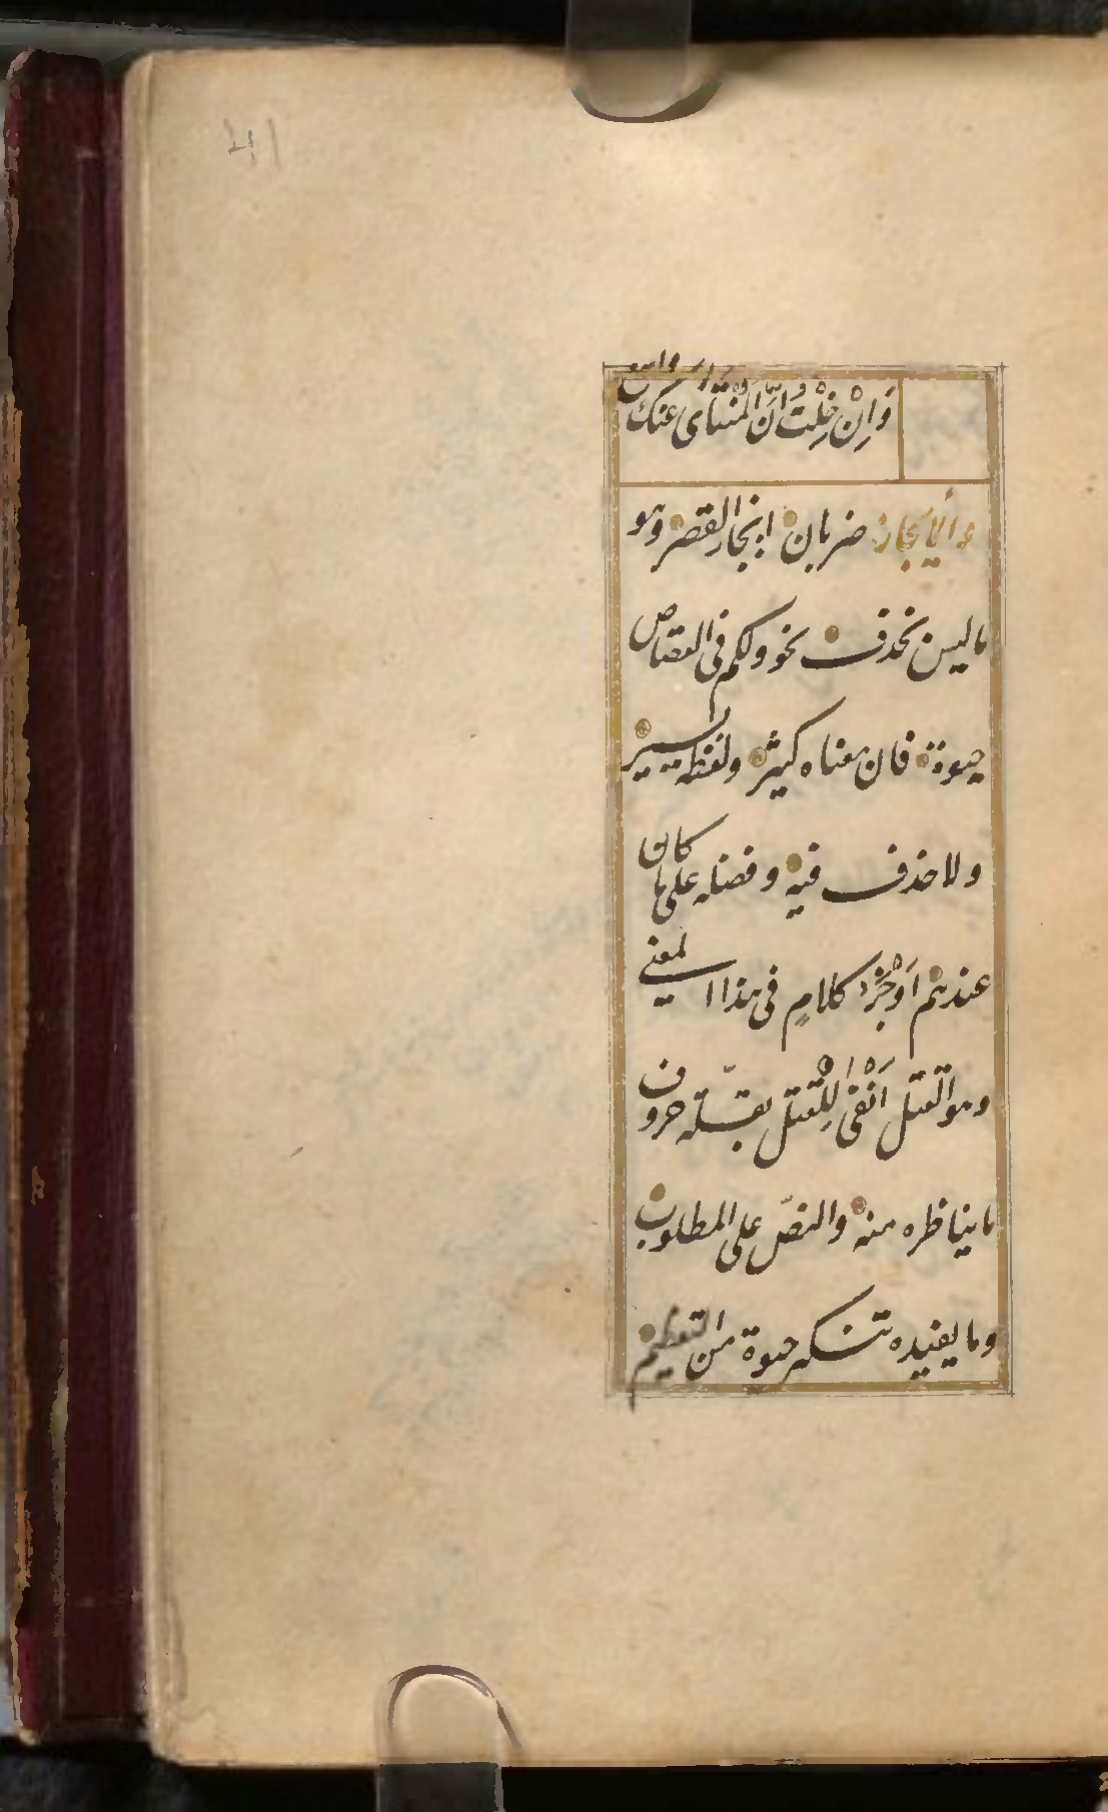 وَاِنْ خِلْتُ اَنَّ الْمُنْتَاٰى عنک واسع
والایجاز ضربان ایجاز القصر وهو
ما لیس بحذف نحو ولکم فی القصاص
حیوة فان معناه کثیر ولفظه یسیر
ولا حذف فیه وفضله علی ما کان
عندهم اَوْجَزُ کلامٍ فی هذا المعنی
وهو القتل اَنْفٰی لِلْقتل بقلّة حروف
ما یناظره منه والنصّ علی المطلوب
وما یفیده تنکیر حیوة من التعظیم